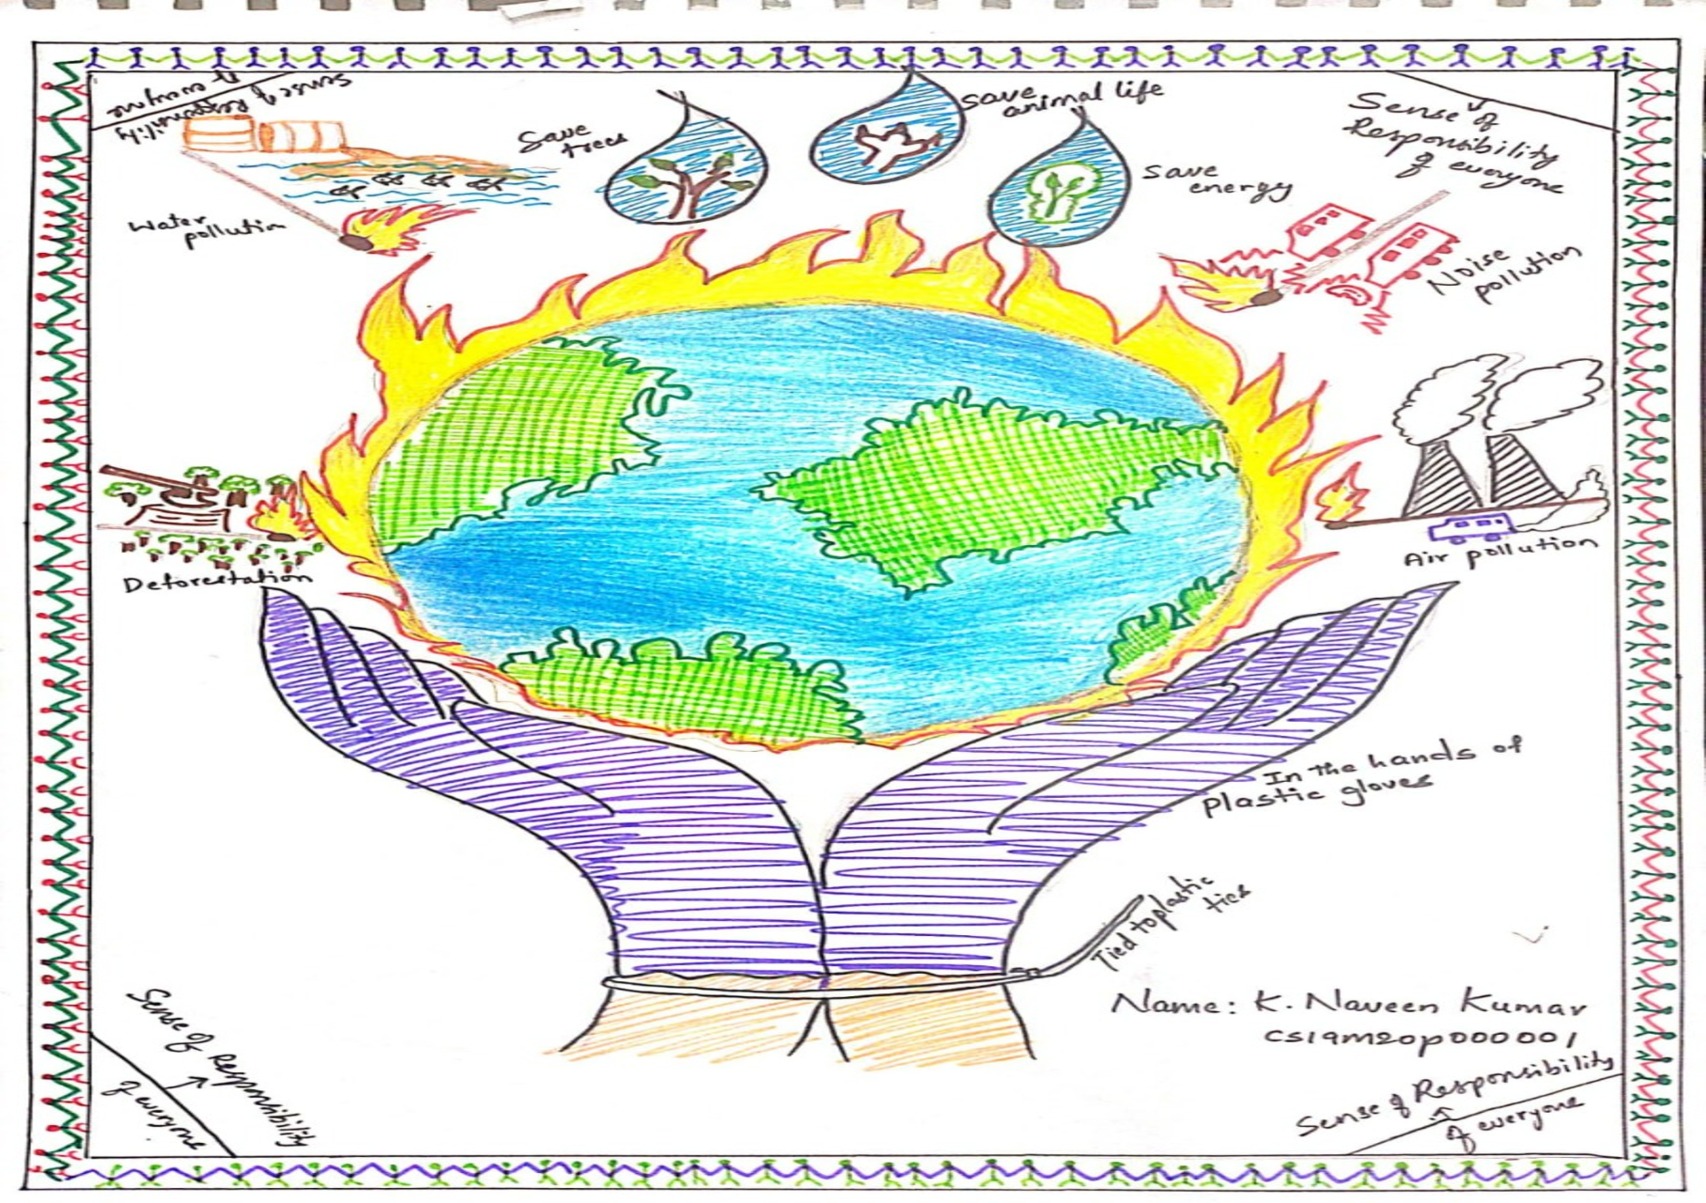 Sense of Responsibility
of everyone
Save
trees
Save
animal life
Save
energy
Sense of
Responsibility
of everyone
Water
pollution
Noise
pollution
Deforestation
Air pollution
In the hands of
plastic gloves
Tied to plastic
ties
Name: K. Naveen Kumar
CS19M20P000001
Sense of Responsibility
of everyone
Sense of Responsibility
of everyone